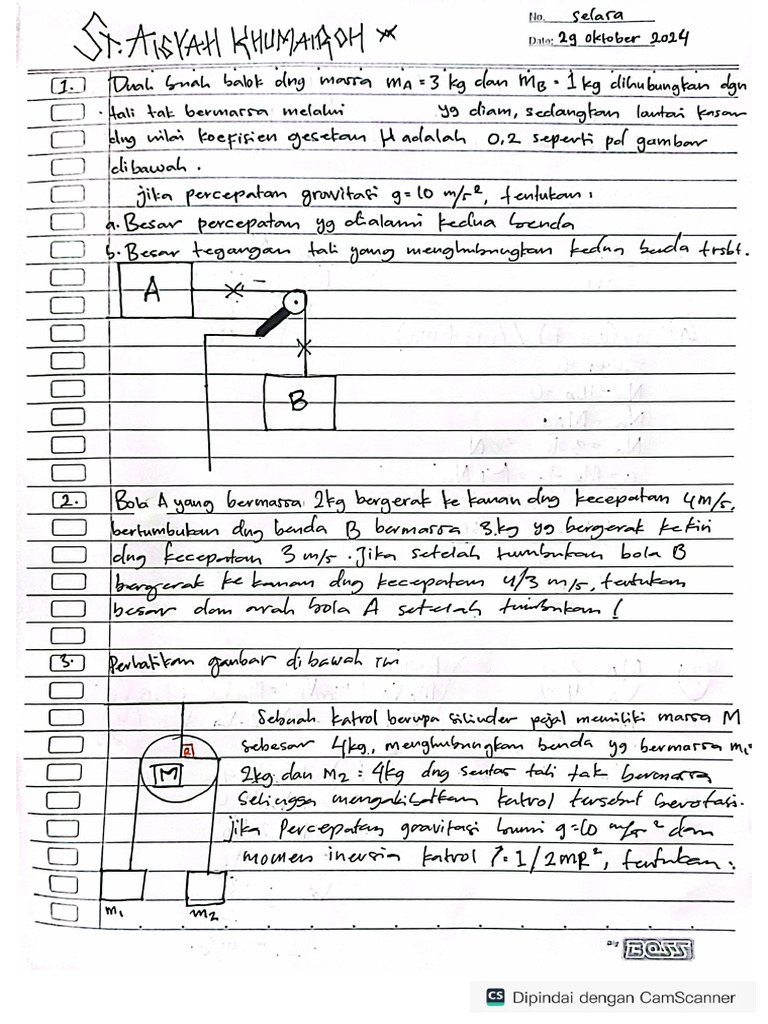 No. selasa
ST. AISYAH KHUMAIROH
Date: 29 Oktober 2024
1. Duah buah balok dng massa mA = 3 kg dan mB = 1 kg dihubungkan dgn
tali tak bermassa melalui yg diam, sedangkan lantai kasar
dng nilai koefisien gesekan μ adalah 0,2 seperti pd gambar
dibawah.
jika percepatan gravitasi g = 10 m/s², tentukan:
a. Besar percepatan yg dialami kedua benda
b. Besar tegangan tali yang menghubungkan kedua benda trsbt.
A
B
2. Bola A yang bermassa 2kg bergerak ke kanan dng kecepatan 4 m/s,
bertumbukan dng benda B bermassa 3 kg yg bergerak ke kiri
dng kecepatan 3 m/s. Jika setelah tumbukan bola B
bergerak ke kanan dng kecepatan 4/3 m/s, tentukan
besar dan arah bola A setelah tumbukan!
3. Perhatikan gambar dibawah ini
Sebuah katrol berupa silinder pejal memiliki massa M
sebesar 4kg, menghubungkan benda yg bermassa m₁=
R
M
2kg dan M₂ = 4kg dng seutas tali tak bermassa
Sehingga mengakibatkan katrol tersebut berotasi.
jika Percepatan gravitasi bumi g=10 m/s² dan
momen inersia katrol I = 1/2 MR², tentukan:
m₁
m₂
BOSS
CS Dipindai dengan CamScanner